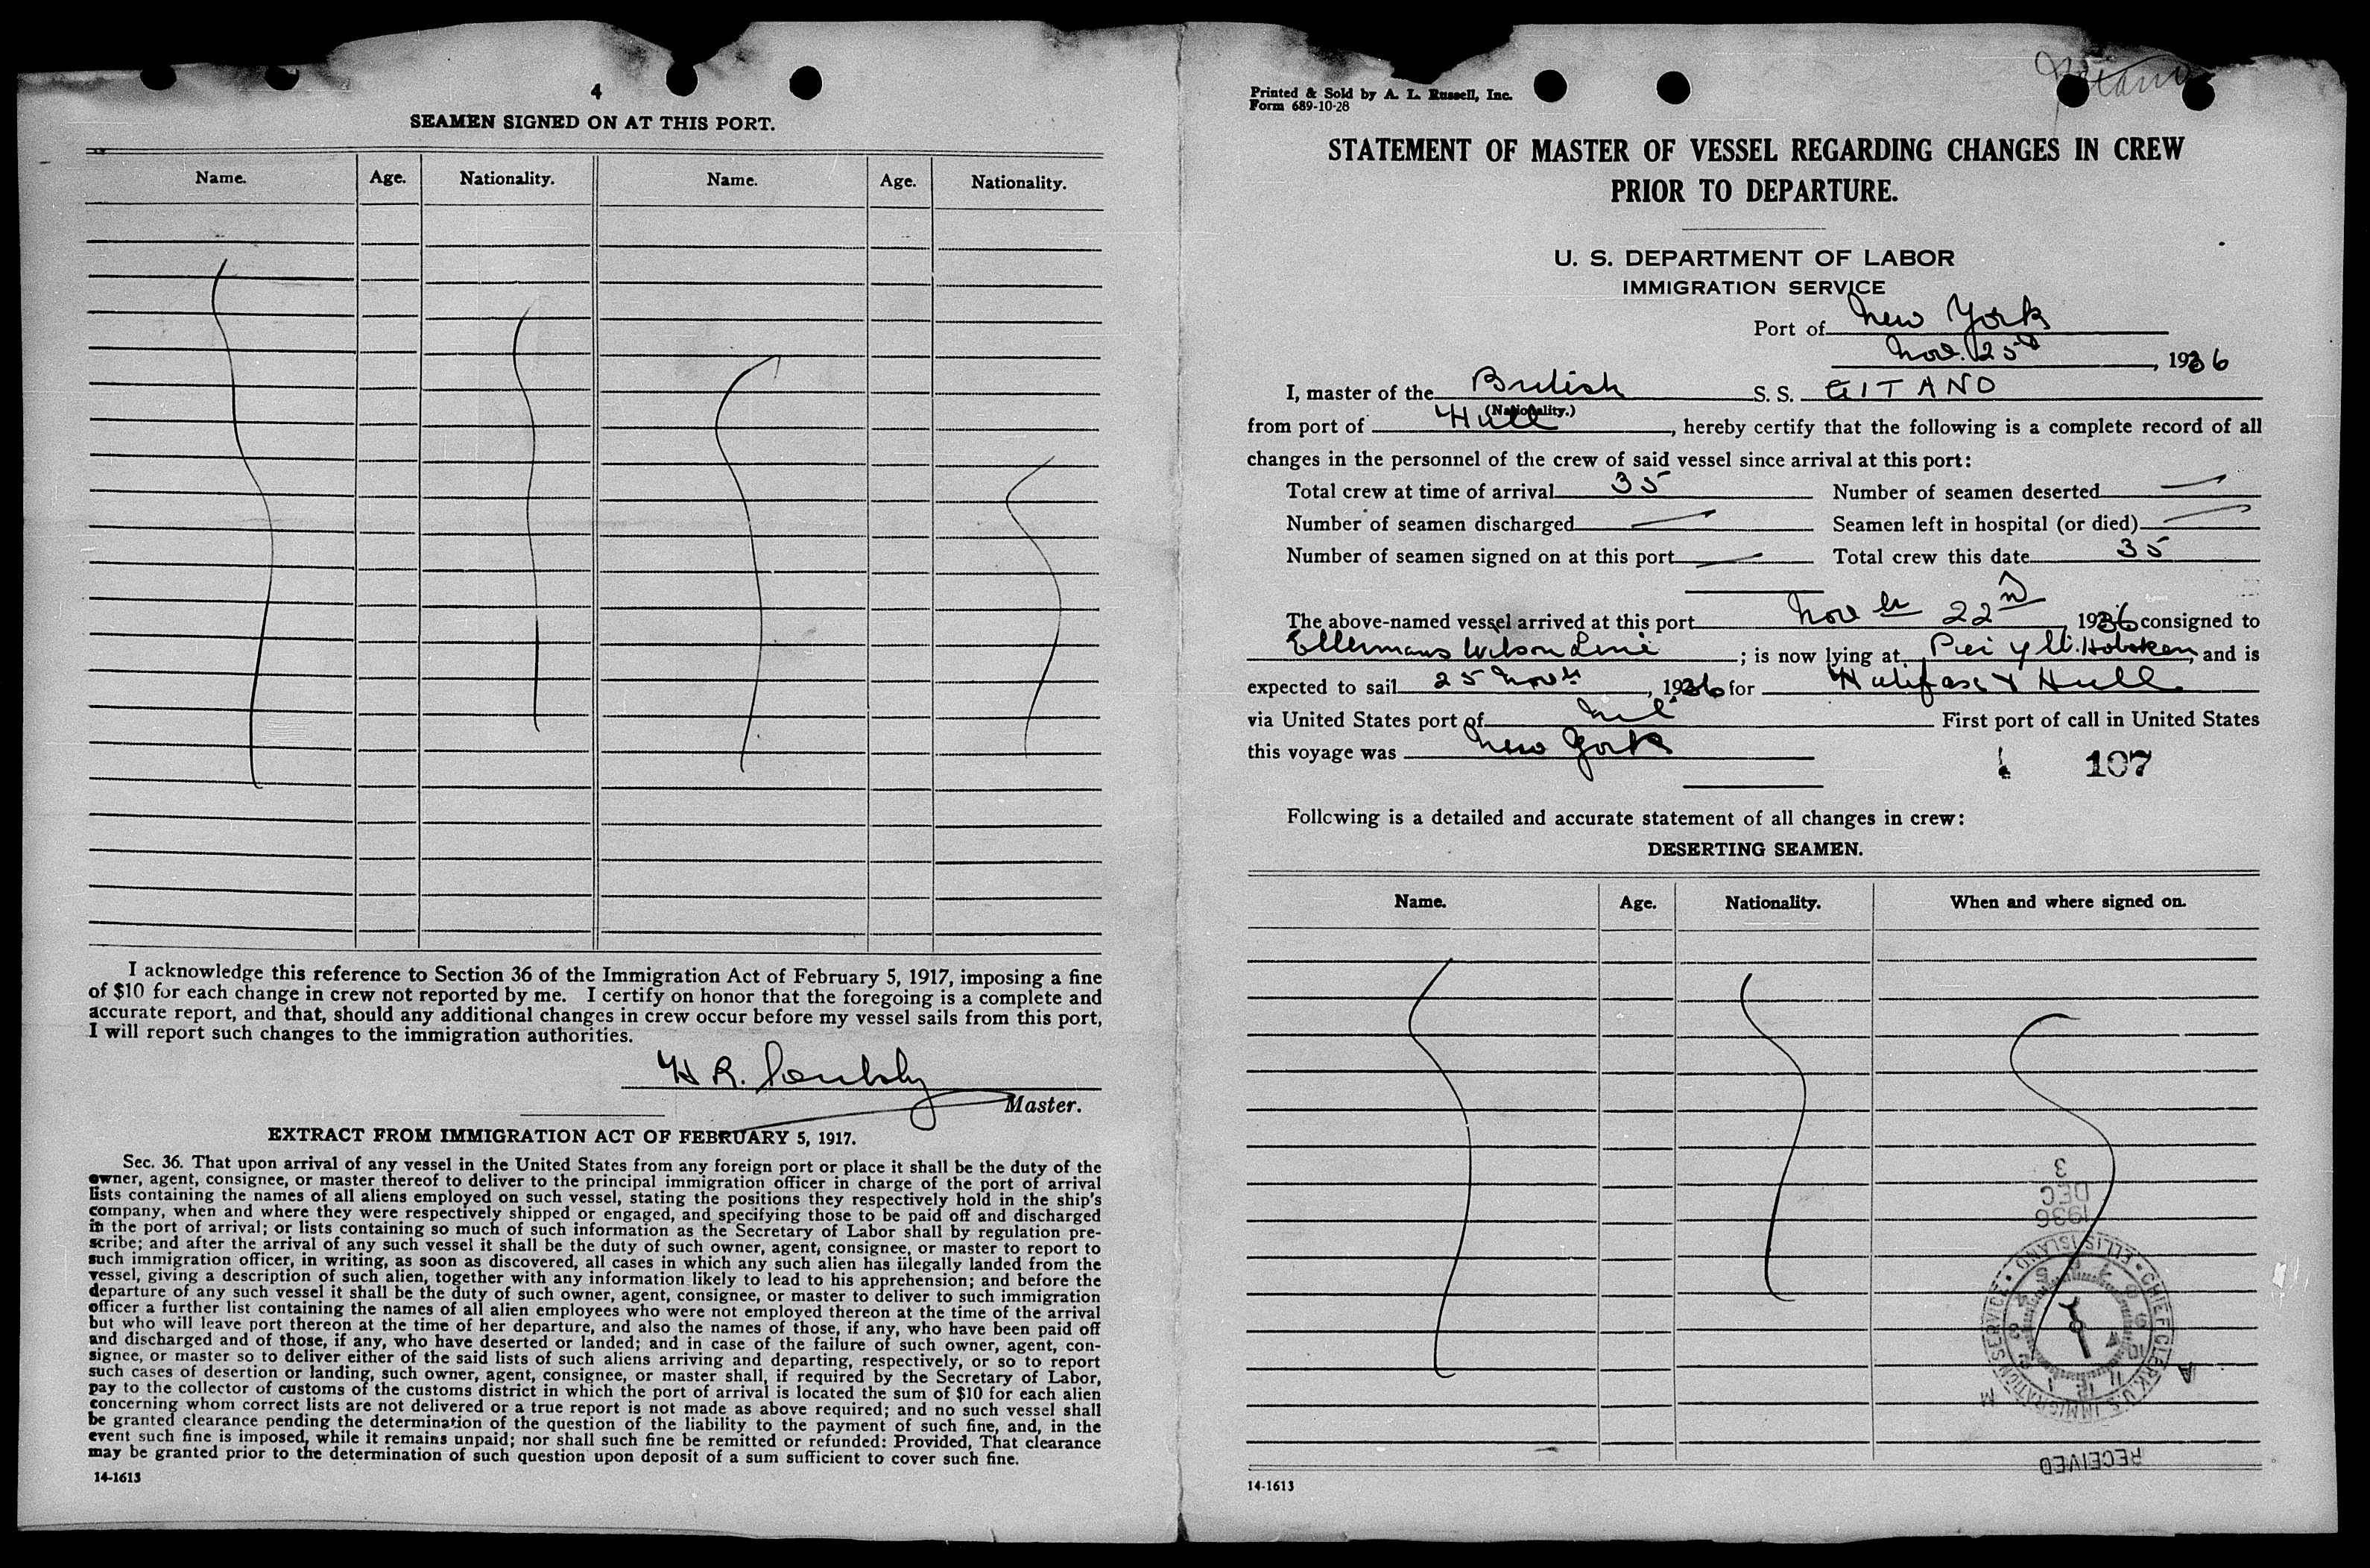 4
SEAMEN SIGNED ON AT THIS PORT.
Name. Age. Nationality. Name. Age. Nationality.
I acknowledge this reference to Section 36 of the Immigration Act of February 5, 1917, imposing a fine
of $10 for each change in crew not reported by me. I certify on honor that the foregoing is a complete and
accurate report, and that, should any additional changes in crew occur before my vessel sails from this port,
I will report such changes to the immigration authorities.
H R.
Master.
EXTRACT FROM IMMIGRATION ACT OF FEBRUARY 5, 1917.
Sec. 36. That upon arrival of any vessel in the United States from any foreign port or place it shall be the duty of the
owner, agent, consignee, or master thereof to deliver to the principal immigration officer in charge of the port of arrival
lists containing the names of all aliens employed on such vessel, stating the positions they respectively hold in the ship's
company, when and where they were respectively shipped or engaged, and specifying those to be paid off and discharged
in the port of arrival; or lists containing so much of such information as the Secretary of Labor shall by regulation pre-
scribe; and after the arrival of any such vessel it shall be the duty of such owner, agent, consignee, or master to report to
such immigration officer, in writing, as soon as discovered, all cases in which any such alien has illegally landed from the
vessel, giving a description of such alien, together with any information likely to lead to his apprehension; and before the
departure of any such vessel it shall be the duty of such owner, agent, consignee, or master to deliver to such immigration
officer a further list containing the names of all alien employees who were not employed thereon at the time of the arrival
but who will leave port thereon at the time of her departure, and also the names of those, if any, who have been paid off
and discharged and of those, if any, who have deserted or landed; and in case of the failure of such owner, agent, con-
signee, or master so to deliver either of the said lists of such aliens arriving and departing, respectively, or so to report
such cases of desertion or landing, such owner, agent, consignee, or master shall, if required by the Secretary of Labor,
pay to the collector of customs of the customs district in which the port of arrival is located the sum of $10 for each alien
concerning whom correct lists are not delivered or a true report is not made as above required; and no such vessel shall
be granted clearance pending the determination of the question of the liability to the payment of such fine, and, in the
event such fine is imposed, while it remains unpaid; nor shall such fine be remitted or refunded: Provided, That clearance
may be granted prior to the determination of such question upon deposit of a sum sufficient to cover such fine.
14-1613
Printed & Sold by A. L. Russell, Inc.
Form 689-10-28
STATEMENT OF MASTER OF VESSEL REGARDING CHANGES IN CREW
PRIOR TO DEPARTURE.
U. S. DEPARTMENT OF LABOR
IMMIGRATION SERVICE
Port of New York
Nov. 25th, 1936
I, master of the British S. S. GITANO
(Nationality.)
from port of Hull, hereby certify that the following is a complete record of all
changes in the personnel of the crew of said vessel since arrival at this port:
Total crew at time of arrival 35 Number of seamen deserted
Number of seamen discharged Seamen left in hospital (or died)
Number of seamen signed on at this port Total crew this date 35
The above-named vessel arrived at this port Novr 22nd, 1936 consigned to
Ellermans Wilson Line; is now lying at Pier 4 W. Hoboken, and is
expected to sail 25 Novr, 1936 for Halifax & Hull
via United States port of Nil First port of call in United States
this voyage was New York
107
Following is a detailed and accurate statement of all changes in crew:
DESERTING SEAMEN.
Name. Age. Nationality. When and where signed on.
3
DEC
1936
CHIEF CLERK, U.S. IMMIGRATION SERVICE • ELLIS ISLAND
RECEIVED
14-1613